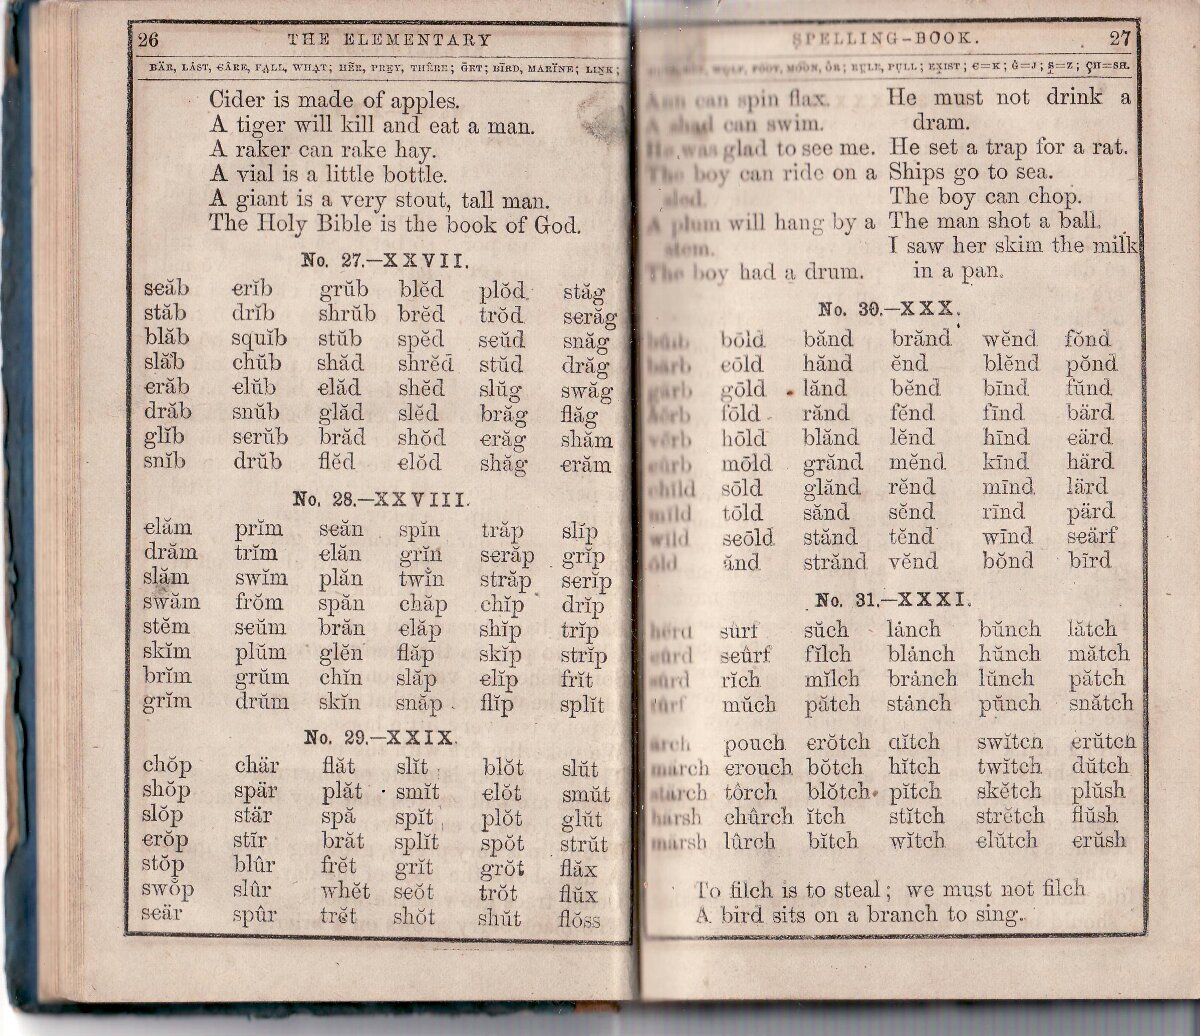 26 THE ELEMENTARY
BÄR, LÁST, ꞒÂRE, FA̤LL, WHA̤T; HẼR, PREY, THÊRE; ḠET; BĪRD, MARÏNE; LIṈK;
Cider is made of apples.
A tiger will kill and eat a man.
A raker can rake hay.
A vial is a little bottle.
A giant is a very stout, tall man.
The Holy Bible is the book of God.
No. 27.—XXVII.
sꞓăb ꞓrĭb grŭb blĕd plŏd stăg
stăb drĭb shrŭb brĕd trŏd sꞓrăg
blăb squĭb stŭb spĕd sꞓŭd snăg
slăb chŭb shăd shrĕd stŭd drăg
ꞓrăb ꞓlŭb ꞓlăd shĕd slŭg swăg
drăb snŭb glăd slĕd brăg flăg
glĭb sꞓrŭb brăd shŏd ꞓrăg shăm
snĭb drŭb flĕd ꞓlŏd shăg ꞓrăm
No. 28.—XXVIII.
ꞓlăm prĭm sꞓăn spĭn trăp slĭp
drăm trĭm ꞓlăn grĭn sꞓrăp grĭp
slăm swĭm plăn twĭn străp sꞓrĭp
swăm frŏm spăn chăp chĭp drĭp
stĕm sꞓŭm brăn ꞓlăp shĭp trĭp
skĭm plŭm glĕn flăp skĭp strĭp
brĭm grŭm chĭn slăp ꞓlĭp frĭt
grĭm drŭm skĭn snăp flĭp splĭt
No. 29.—XXIX.
chŏp chär flăt slĭt blŏt slŭt
shŏp spär plăt smĭt ꞓlŏt smŭt
slŏp stär spă spĭt plŏt glŭt
ꞓrŏp stĭr brăt splĭt spŏt strŭt
stŏp blûr frĕt grĭt grŏt flăx
swŏp slûr whĕt sꞓŏt trŏt flŭx
sꞓär spûr trĕt shŏt shŭt flŏss
SPELLING-BOOK. 27
WOLF, FOOT, MOON, ÔR; RṲLE, PṲLL; EX̱IST; Ꞓ=K; Ġ=J; S̱=Z; ÇH=SH.
Ann can spin flax.
A shad can swim.
He was glad to see me.
The boy can ride on a
sled.
A plum will hang by a
stem.
The boy had a drum.
He must not drink a
dram.
He set a trap for a rat.
Ships go to sea.
The boy can chop.
The man shot a ball.
I saw her skim the milk
in a pan.
No. 30.—XXX.
bŭlb bōld bănd brănd wĕnd fŏnd
bärb ꞓōld hănd ĕnd blĕnd pŏnd
gärb gōld lănd bĕnd bīnd fŭnd
hẽrb fōld rănd fĕnd fīnd bärd
vẽrb hōld blănd lĕnd hīnd ꞓärd
ꞓûrb mōld grănd mĕnd kīnd härd
child sōld glănd rĕnd mīnd lärd
mīld tōld sănd sĕnd rīnd pärd
wīld sꞓōld stănd tĕnd wīnd sꞓärf
ōld ănd strănd vĕnd bŏnd bīrd
No. 31.—XXXI.
hẽrd sûrf sŭch lȧnch bŭnch lătch
ꞓûrd sꞓûrf fĭlch blȧnch hŭnch mătch
sûrd rĭch mĭlch brȧnch lŭnch pătch
tûrf mŭch pătch stȧnch pŭnch snătch
ärch pouch ꞓrŏtch dĭtch swĭtch ꞓrŭtch
märch ꞓrouch bŏtch hĭtch twĭtch dŭtch
stärch tôrch blŏtch pĭtch skĕtch plŭsh
härsh chûrch ĭtch stĭtch strĕtch flŭsh
märsh lûrch bĭtch wĭtch ꞓlŭtch ꞓrŭsh
To filch is to steal; we must not filch
A bird sits on a branch to sing.